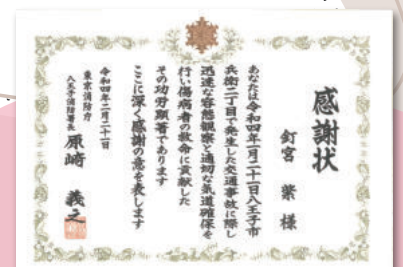 感謝状
釘宮 葉 様
あなたは令和四年一月二十一日八王子市
兵衛二丁目で発生した交通事故に際し
迅速な容態観察と適切な気道確保を
行い傷病者の救命に貢献した
その功労顕著であります
ここに深く感謝の意を表します
令和四年二月二十一日
東京消防庁
八王子消防署長 原崎 義之